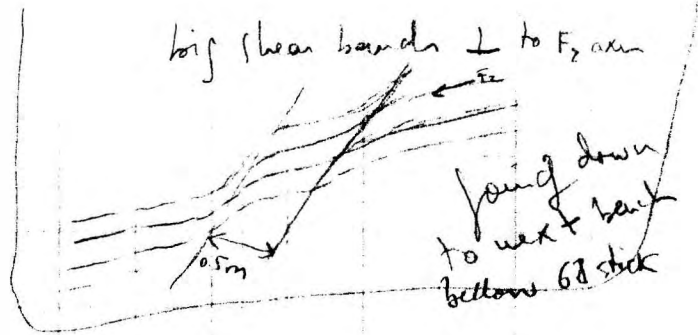 big shear bands ⊥ to F₂ axis
F₂
0.5m
going down
to next bench
bellow 68 stick